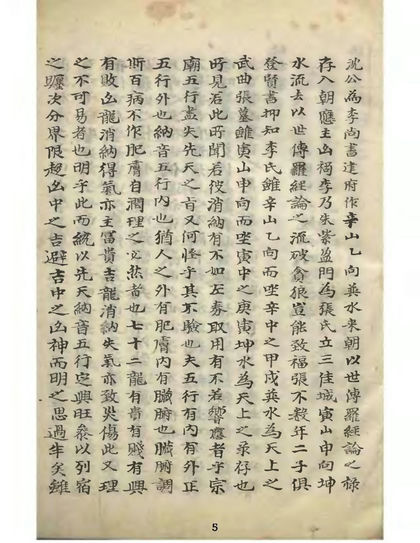 沈公為李尚書建府作辛山乙向巽水來朝以世傳羅經論之祿
存入朝應主凶禍李乃朱紫盈門為張氏立三佳城寅山申向坤
水流去以世傳羅經論之流破貪狼豈能致福張不数年二子俱
登賢書抑知李氏雖辛山乙向而坐辛中之甲戌巽水為天上之
武曲張墓雖寅山申向而坐寅中之庚寅坤水為天上之录存也
所見若此所聞若彼消納有不如左券取用有不若響應者乎宗
廟五行盡失先天之旨又何怪乎其不驗也夫五行有内有外正
五行外也納音五行内也猶人之外有肥膚内有臟腑也臟腑調
斯百病不作肥膚自潤理之必然者也七十二龍有貴有賤有興
有敗凶龍消納得氣亦主富貴吉龍消納失氣亦致災傷此又理
之不可易者也明乎此而統以先天納音五行定興旺叅以列宿
之躔次分界限趨凶中之吉避吉中之凶神而明之思過半矣雖
5